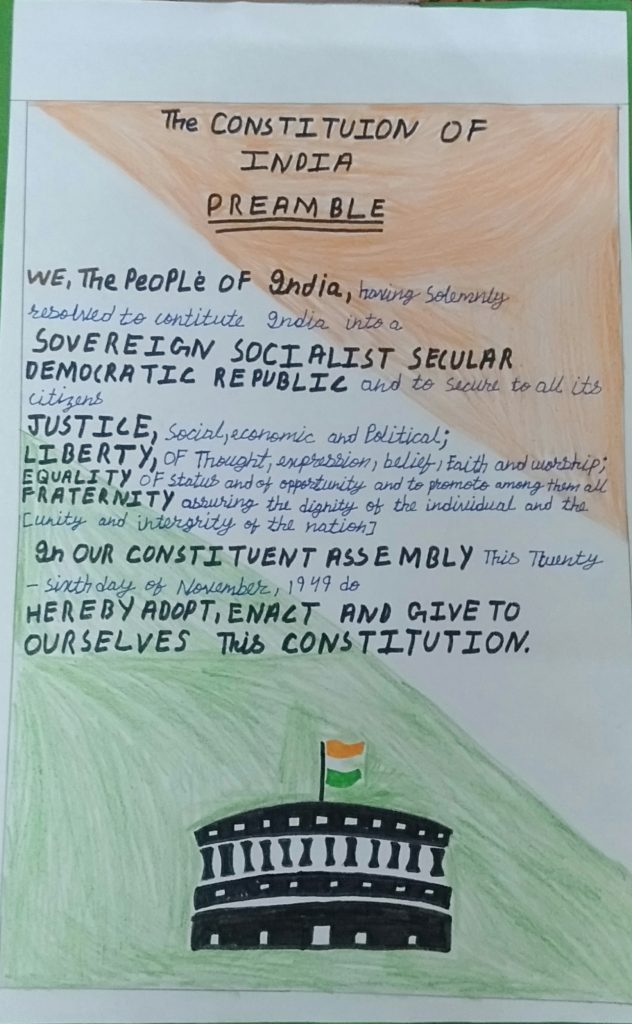 The CONSTITUION OF
INDIA
PREAMBLE
WE, The PEOPLE OF India, having Solemnly
resolved to contitute India into a
SOVEREIGN SOCIALIST SECULAR
DEMOCRATIC REPUBLIC and to secure to all its
citizens
JUSTICE, Social, economic and Political;
LIBERTY, OF Thought, expression, belief, Faith and worship;
EQUALITY OF status and of opportunity and to promoto among them all
FRATERNITY assuring the dignity of the individual and the
[unity and intergrity of the nation]
In OUR CONSTITUENT ASSEMBLY This Twenty
- sixth day of November, 1949 do
HEREBY ADOPT, ENACT AND GIVE TO
OURSELVES This CONSTITUTION.